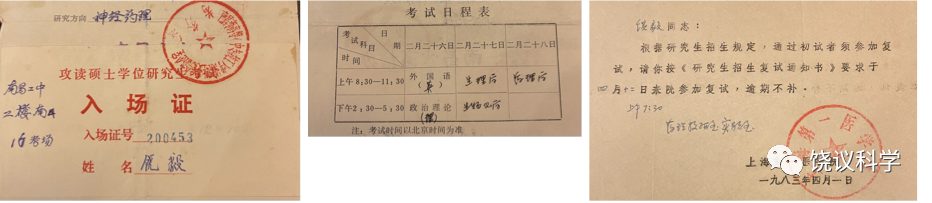 研究方向 神经药理
攻读硕士学位研究生
入场证
南昌二中
二楼南
16考场
入场证号 200453
姓名 饶毅
考试日程表
考试科目 日期 时间 二月二十六日 二月二十七日 二月二十八日
上午8:30—11:30 外国语 生理学 药理学
(英)
下午2:30—5:30 政治理论
(理)
注:考试时间以北京时间为准
饶毅同志:
根据研究生招生规定,通过初试者须参加复
试,请你按《研究生招生复试通知书》要求于
四月十二日来院参加复试,逾期不补。
上午7:30
上海第一医学
一九八三年四月一日
饶议科学